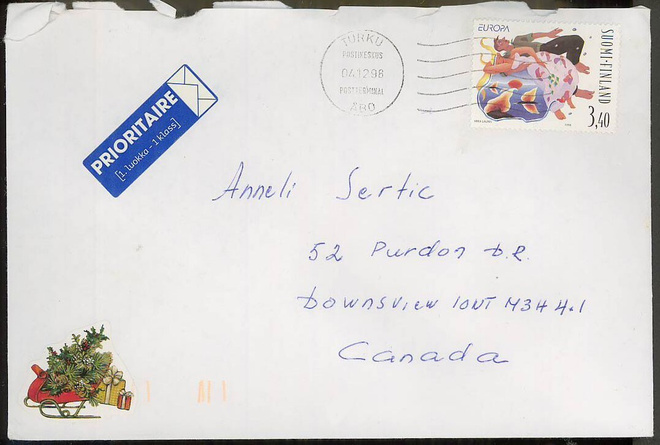 TURKU
POSTIKESKUS
04.12.98
POSTTERMINAL
ÅBO
EUROPA
SUOMI-FINLAND
3,40
PRIORITAIRE
[1. luokka - 1 klass]
Anneli Sertic
52 Purdon D.R.
DOWNSVIEW ONT M3H 4.1
Canada